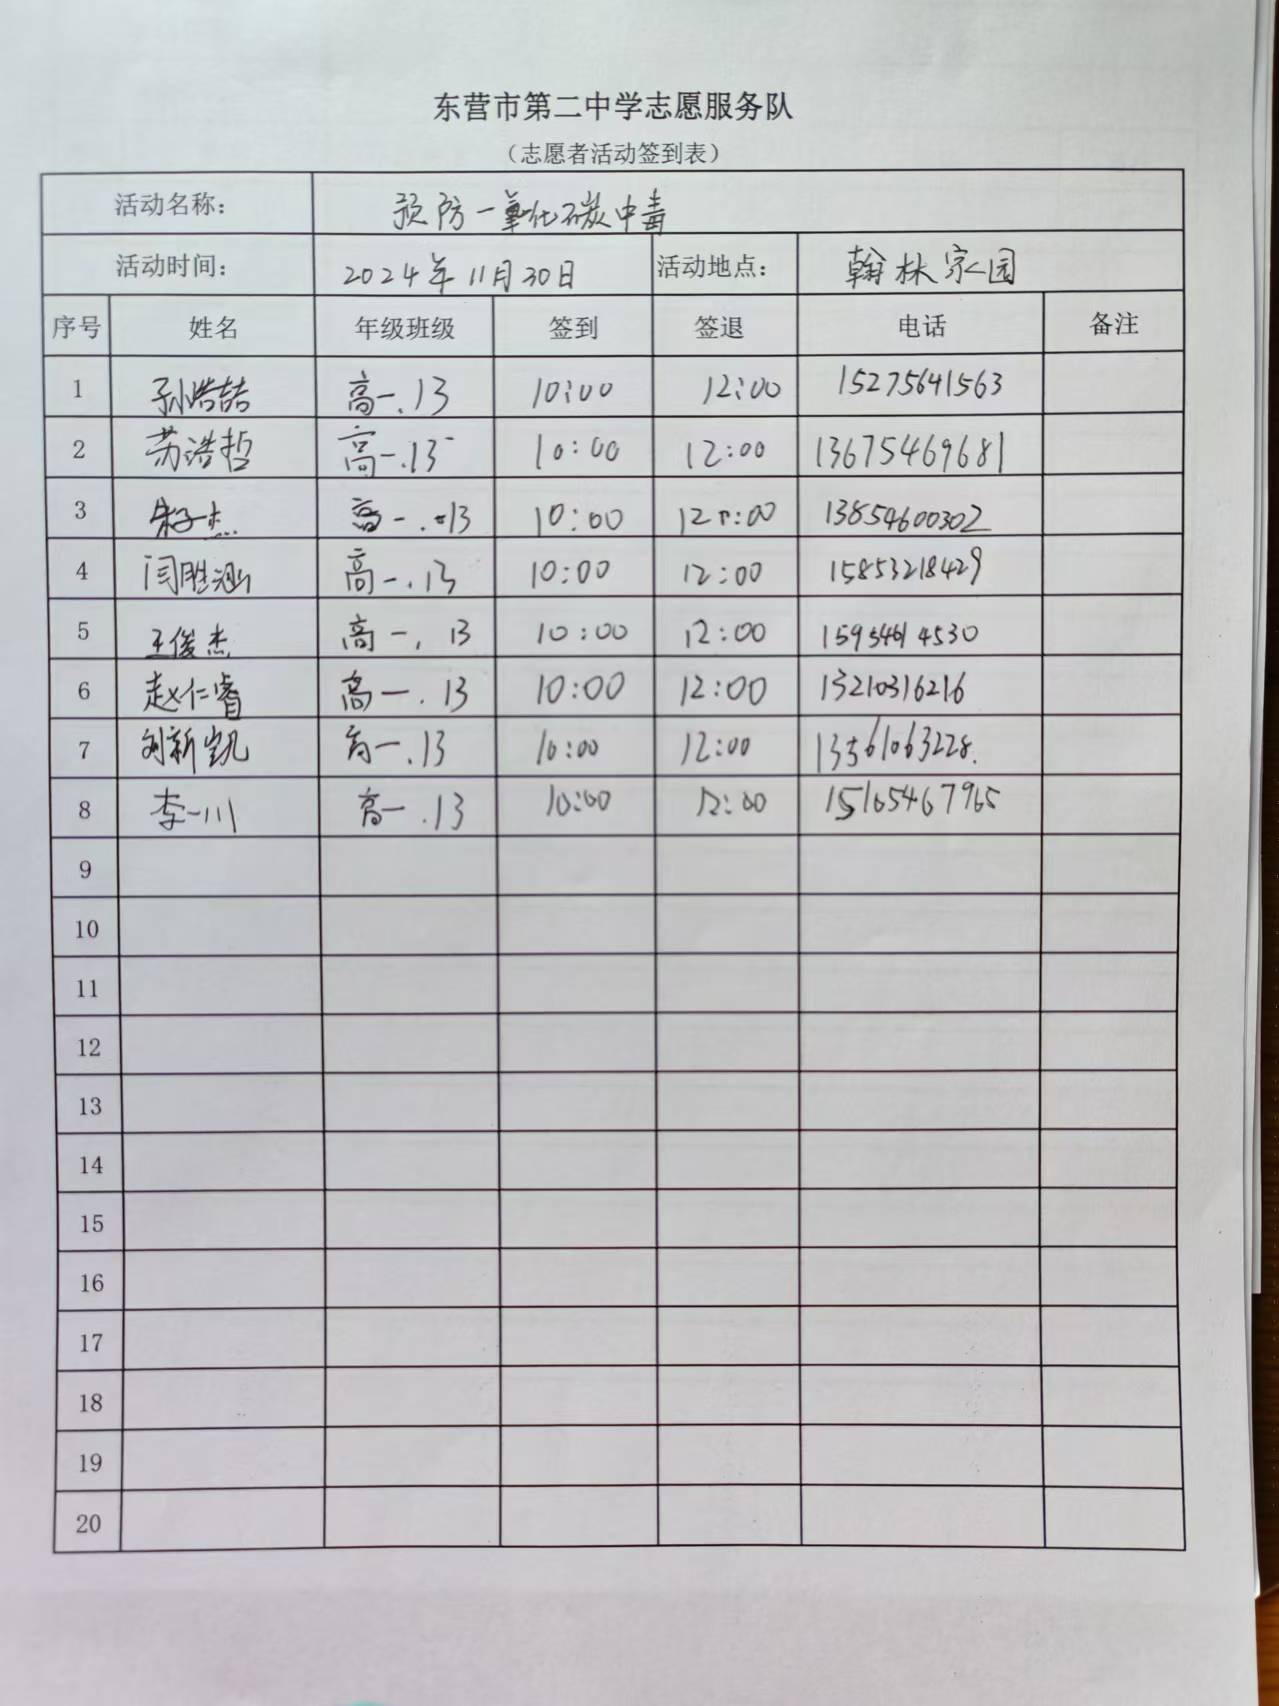 东营市第二中学志愿服务队
（志愿者活动签到表）
活动名称： 预防一氧化碳中毒
活动时间： 2024年11月30日 活动地点： 翰林家园
序号 姓名 年级班级 签到 签退 电话 备注
1 孙浩喆 高一.13 10:00 12:00 15275641563
2 苏浩哲 高一.13 10:00 12:00 13675469681
3 朱子杰 高一.13 10:00 12:00 13854600302
4 闫胜涵 高一.13 10:00 12:00 15853218429
5 王俊杰 高一.13 10:00 12:00 15954614530
6 赵仁睿 高一.13 10:00 12:00 13210316216
7 刘新凯 高一.13 10:00 12:00 13561063228.
8 李一川 高一.13 10:00 12:00 15165467965
9
10
11
12
13
14
15
16
17
18
19
20